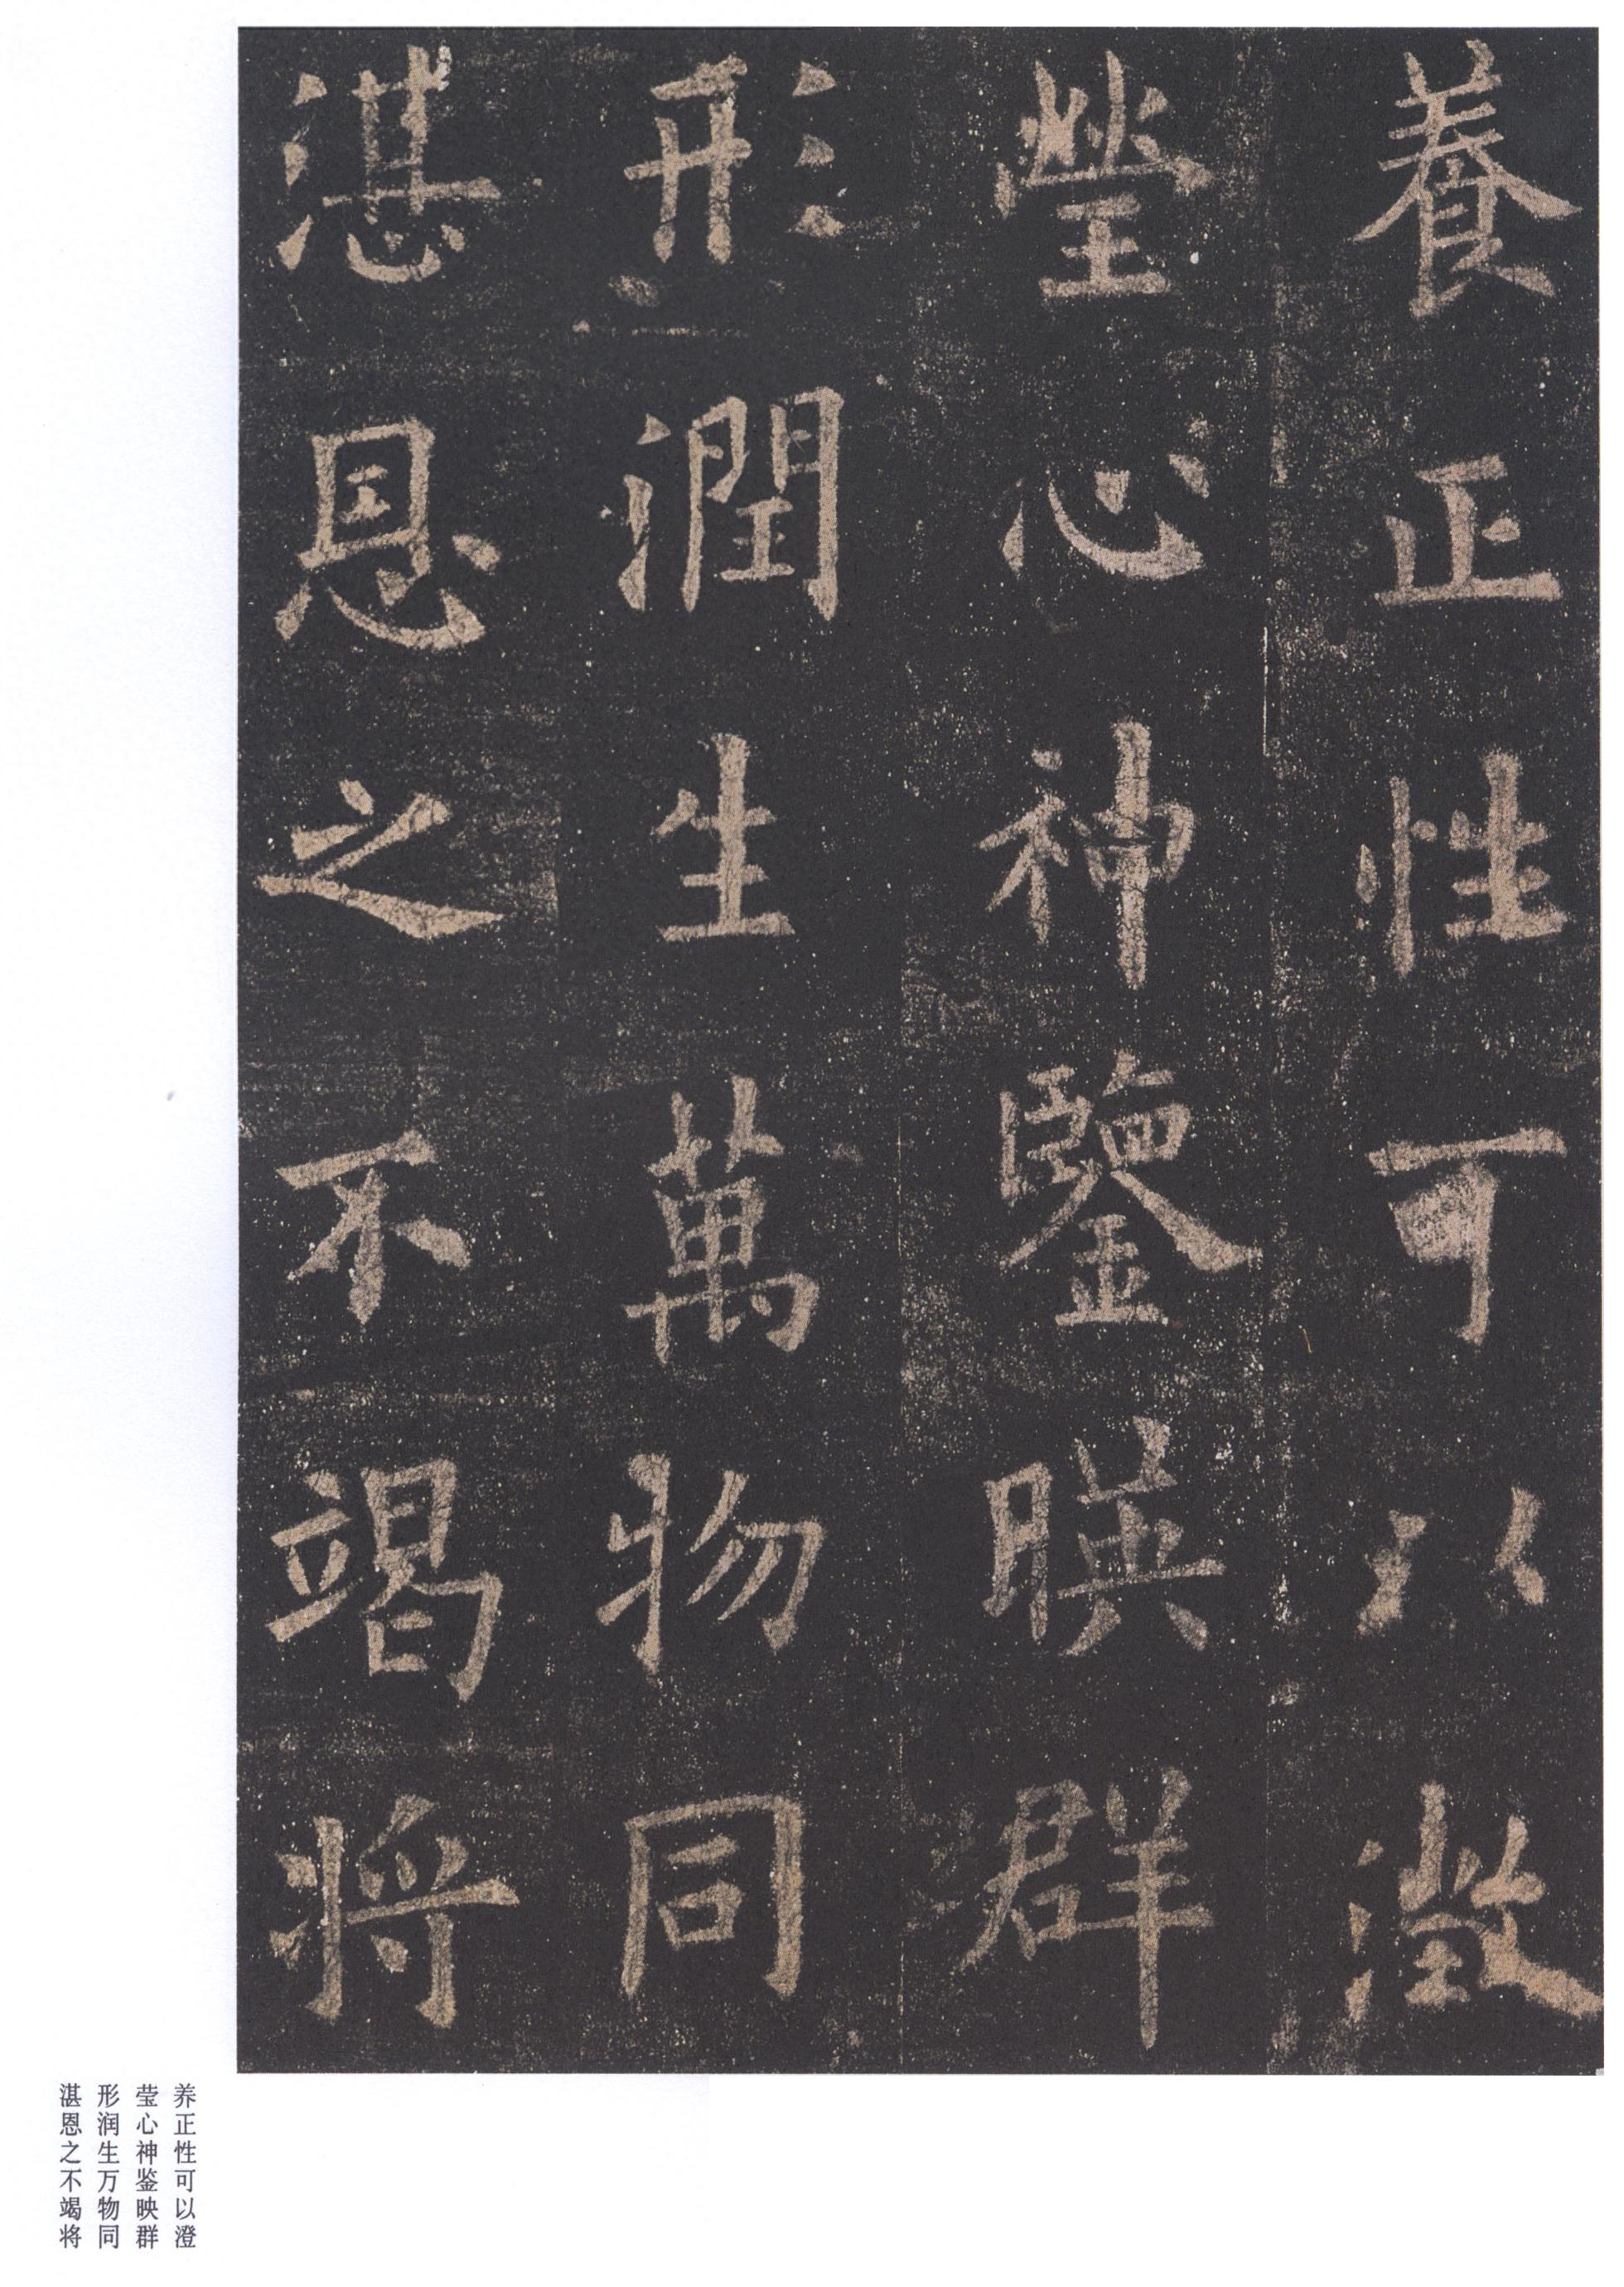 養正性可以澂
瑩心神鑒暎群
形潤生萬物同
湛恩之不竭将
养正性可以澄
莹心神鉴映群
形润生万物同
湛恩之不竭将